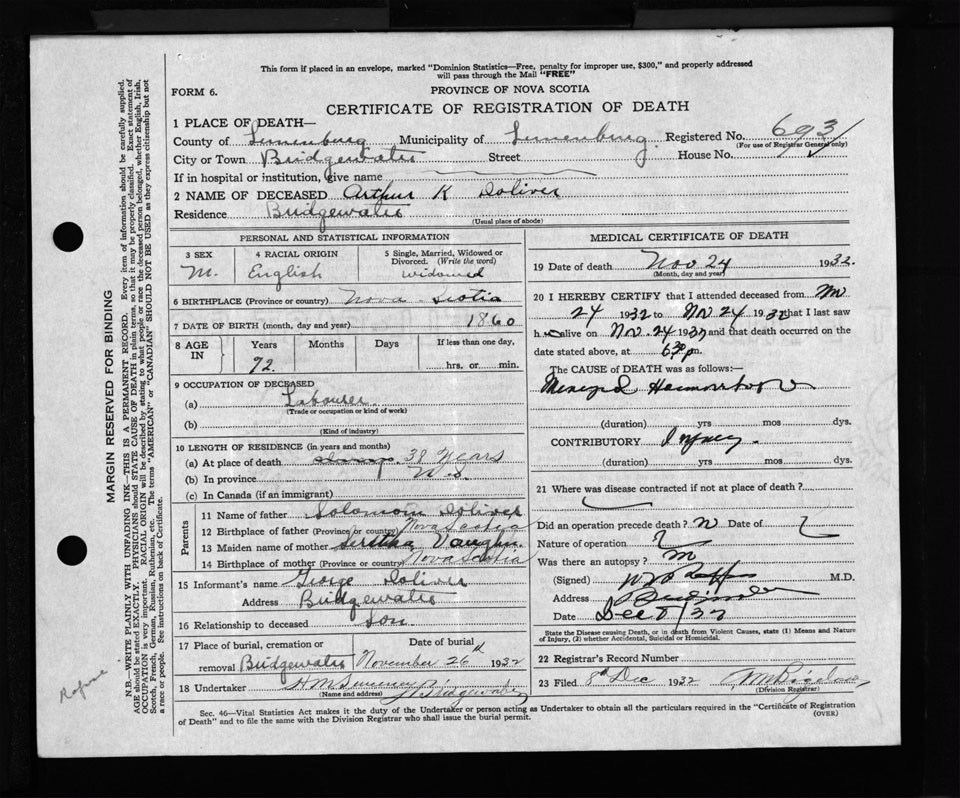 This form if placed in an envelope, marked "Dominion Statistics—Free, penalty for improper use, $300," and properly addressed
will pass through the Mail "FREE"
FORM 6.
PROVINCE OF NOVA SCOTIA
CERTIFICATE OF REGISTRATION OF DEATH
1 PLACE OF DEATH—
County of Lunenburg Municipality of Lunenburg Registered No. 693
(For use of Registrar General only)
City or Town Bridgewater Street House No.
If in hospital or institution, give name
2 NAME OF DECEASED Arthur K Doliver
Residence Bridgewater
(Usual place of abode)
PERSONAL AND STATISTICAL INFORMATION
3 SEX
M.
4 RACIAL ORIGIN
English
5 Single, Married, Widowed or
Divorced. (Write the word)
widowed
6 BIRTHPLACE (Province or country) Nova Scotia
7 DATE OF BIRTH (month, day and year) 1860
8 AGE
IN
Years
72.
Months
Days
If less than one day,
hrs. or min.
9 OCCUPATION OF DECEASED
(a) Labourer
(Trade or occupation or kind of work)
(b)
(Kind of industry)
10 LENGTH OF RESIDENCE (in years and months)
(a) At place of death 38 Years
(b) In province
(c) In Canada (if an immigrant)
Parents
11 Name of father Solomon Doliver
12 Birthplace of father (Province or country) Nova Scotia
13 Maiden name of mother Vaughn
14 Birthplace of mother (Province or country) Nova Scotia
15 Informant's name George Doliver
Address Bridgewater
16 Relationship to deceased Son
17 Place of burial, cremation or
removal Bridgewater
Date of burial
November 26th 1932
18 Undertaker H M Sweeney Bridgewater
(Name and address)
MEDICAL CERTIFICATE OF DEATH
19 Date of death Nov 24 1932.
(Month, day and year)
20 I HEREBY CERTIFY that I attended deceased from
24 1932 to Nov 24 1932 that I last saw
h alive on Nov. 24 1932 and that death occurred on the
date stated above, at 630 p m.
The CAUSE OF DEATH was as follows:—
Haemorrhage
(duration) yrs mos dys.
CONTRIBUTORY
(duration) yrs mos dys.
21 Where was disease contracted if not at place of death?
Did an operation precede death? n Date of
Nature of operation ?
Was there an autopsy?
(Signed) M.D.
Address
Date Dec 8/32
State the Disease causing Death, or in death from Violent Causes, state (1) Means and Nature
of Injury, (2) whether Accidental, Suicidal or Homicidal.
22 Registrar's Record Number
23 Filed 8th Dec 1932
(Division Registrar)
Sec. 46—Vital Statistics Act makes it the duty of the Undertaker or person acting as Undertaker to obtain all the particulars required in the "Certificate of Registration
of Death" and to file the same with the Division Registrar who shall issue the burial permit.
(OVER)
MARGIN RESERVED FOR BINDING
N.B.—WRITE PLAINLY WITH UNFADING INK—THIS IS A PERMANENT RECORD. Every item of information should be carefully supplied.
AGE should be stated EXACTLY. PHYSICIANS should STATE CAUSE OF DEATH in plain terms, so that it may be properly classified. Exact statement of
OCCUPATION is very important. RACIAL ORIGIN will be described by stating to what people or race the deceased person belonged, whether English, Irish,
Scotch, French, German, Russian, Ruthenian, etc. The terms "AMERICAN" or "CANADIAN" SHOULD NOT BE USED as they express citizenship but not
a race or people. See instructions on back of Certificate.